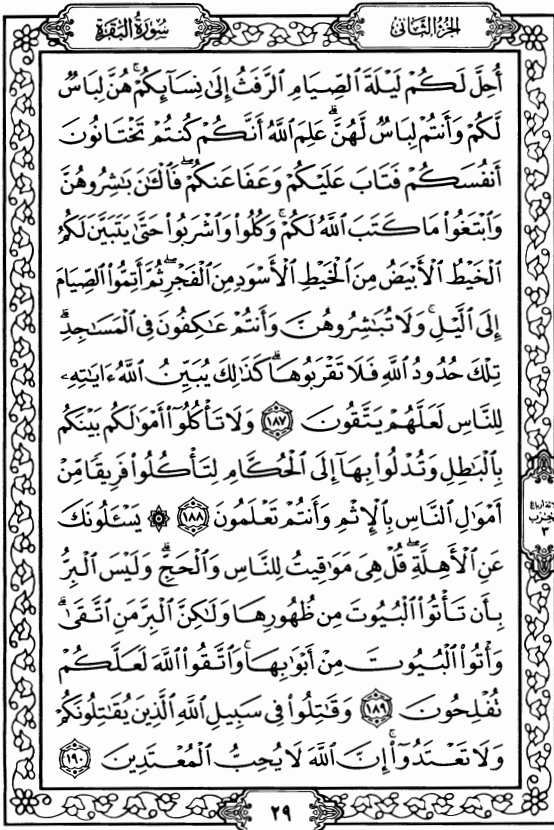 سُورَةُ البَقَرَةِ
الجُزْءُ الثَّانِي
أُحِلَّ لَكُمْ لَيْلَةَ ٱلصِّيَامِ ٱلرَّفَثُ إِلَىٰ نِسَآئِكُمْ ۚ هُنَّ لِبَاسٌ
لَّكُمْ وَأَنتُمْ لِبَاسٌ لَّهُنَّ ۗ عَلِمَ ٱللَّهُ أَنَّكُمْ كُنتُمْ تَخْتَانُونَ
أَنفُسَكُمْ فَتَابَ عَلَيْكُمْ وَعَفَا عَنكُمْ ۖ فَٱلْـَٰٔنَ بَـٰشِرُوهُنَّ
وَٱبْتَغُوا۟ مَا كَتَبَ ٱللَّهُ لَكُمْ ۚ وَكُلُوا۟ وَٱشْرَبُوا۟ حَتَّىٰ يَتَبَيَّنَ لَكُمُ
ٱلْخَيْطُ ٱلْأَبْيَضُ مِنَ ٱلْخَيْطِ ٱلْأَسْوَدِ مِنَ ٱلْفَجْرِ ۖ ثُمَّ أَتِمُّوا۟ ٱلصِّيَامَ
إِلَى ٱلَّيْلِ ۚ وَلَا تُبَـٰشِرُوهُنَّ وَأَنتُمْ عَـٰكِفُونَ فِى ٱلْمَسَـٰجِدِ ۗ
تِلْكَ حُدُودُ ٱللَّهِ فَلَا تَقْرَبُوهَا ۗ كَذَٰلِكَ يُبَيِّنُ ٱللَّهُ ءَايَـٰتِهِۦ
لِلنَّاسِ لَعَلَّهُمْ يَتَّقُونَ ١٨٧ وَلَا تَأْكُلُوٓا۟ أَمْوَٰلَكُم بَيْنَكُم
بِٱلْبَـٰطِلِ وَتُدْلُوا۟ بِهَآ إِلَى ٱلْحُكَّامِ لِتَأْكُلُوا۟ فَرِيقًا مِّنْ
أَمْوَٰلِ ٱلنَّاسِ بِٱلْإِثْمِ وَأَنتُمْ تَعْلَمُونَ ١٨٨ ۞ يَسْـَٔلُونَكَ
عَنِ ٱلْأَهِلَّةِ ۖ قُلْ هِىَ مَوَٰقِيتُ لِلنَّاسِ وَٱلْحَجِّ ۗ وَلَيْسَ ٱلْبِرُّ
بِأَن تَأْتُوا۟ ٱلْبُيُوتَ مِن ظُهُورِهَا وَلَـٰكِنَّ ٱلْبِرَّ مَنِ ٱتَّقَىٰ ۗ
وَأْتُوا۟ ٱلْبُيُوتَ مِنْ أَبْوَٰبِهَا ۚ وَٱتَّقُوا۟ ٱللَّهَ لَعَلَّكُمْ
تُفْلِحُونَ ١٨٩ وَقَـٰتِلُوا۟ فِى سَبِيلِ ٱللَّهِ ٱلَّذِينَ يُقَـٰتِلُونَكُمْ
وَلَا تَعْتَدُوٓا۟ ۚ إِنَّ ٱللَّهَ لَا يُحِبُّ ٱلْمُعْتَدِينَ ١٩٠
أرباع
٣
٢٩